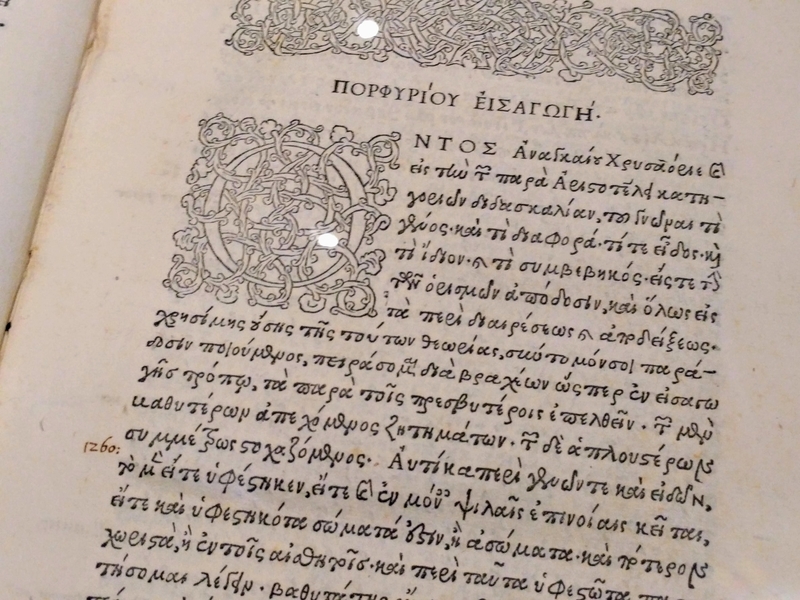 ΠΟΡΦΥΡΙΟΥ ΕἸΣΑΓΩΓΉ·
ΝΤΟΣ Ἀναγκαίου Χρυσαόριε καὶ
εἰς τὴν τῶν παρὰ Ἀριστοτέλει κατη-
γοριῶν διδασκαλίαν, τοῦ γνῶναι τί
γένος· καὶ τί διαφορά· τί τε εἶδος· καὶ
τί ἴδιον· καὶ τί συμβεβηκός· εἴς τε τὴν
τῶν ὁρισμῶν ἀπόδοσιν, καὶ ὅλως εἰς
τὰ περὶ διαιρέσεως καὶ ἀποδείξεως·
χρησίμης οὔσης τῆς τούτων θεωρίας, σύντομόν σοι παρά-
δοσιν ποιούμενος, πειράσομαι διὰ βραχέων ὥσπερ ἐν εἰσαγω
γῆς τρόπῳ, τὰ παρὰ τοῖς πρεσβυτέροις ἐπελθεῖν· τῶν μὲν
βαθυτέρων ἀπεχόμενος ζητημάτων· τῶν δὲ ἁπλουστέρων
συμμέτρως στοχαζόμενος· Αὐτίκα περὶ γενῶν τε καὶ εἰδῶν,
1260:
τὸ μὲν εἴτε ὑφέστηκεν, εἴτε καὶ ἐν μόναις ψιλαῖς ἐπινοίαις κεῖται,
εἴτε καὶ ὑφεστηκότα σώματά ἐστιν, ἢ ἀσώματα· καὶ πότερον
χωριστὰ, ἢ ἐν τοῖς αἰσθητοῖς· καὶ περὶ ταῦτα ὑφεστῶτα
τήσομαι λέγειν· βαθυτάτης